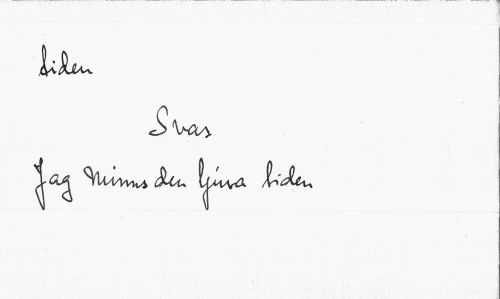 tiden
Svar
Jag minns den ljuva tiden